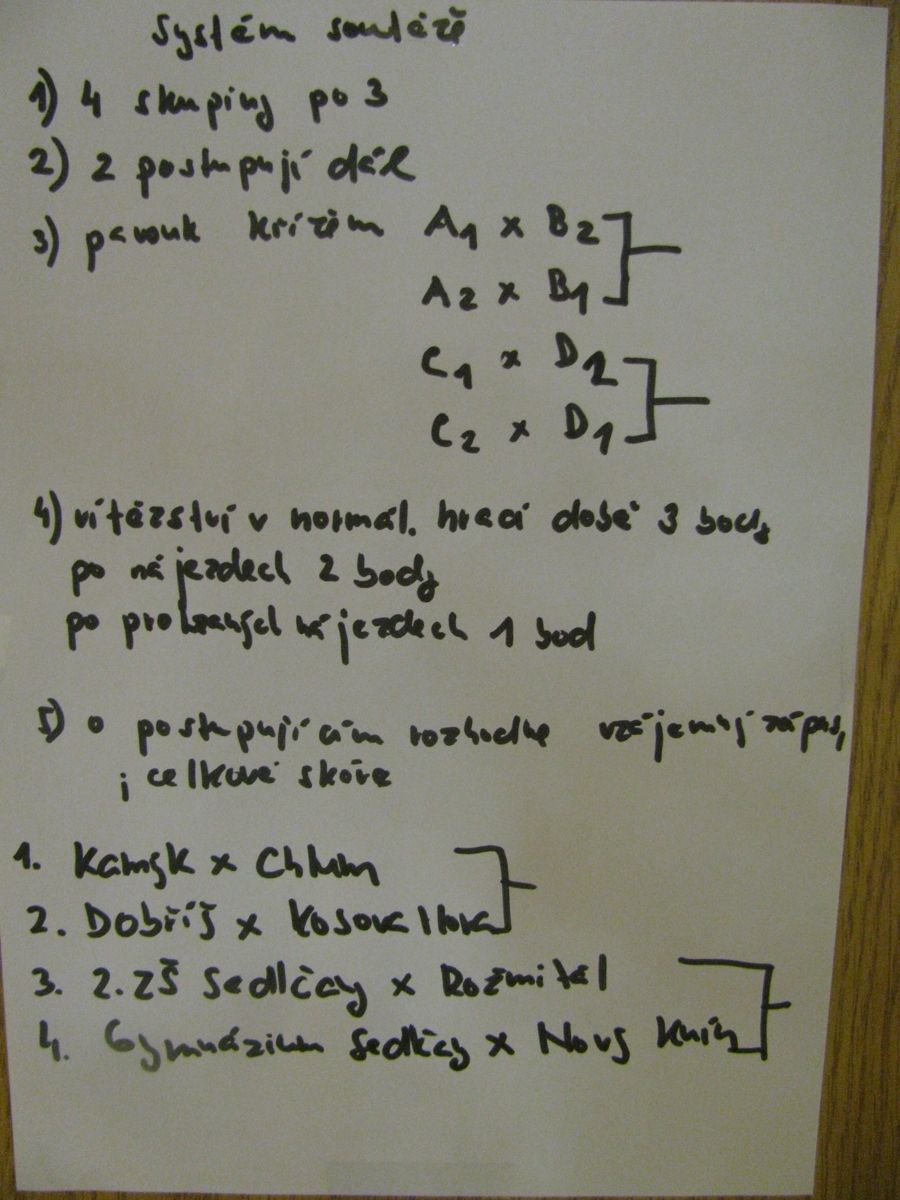 Systém soutěže
1) 4 skupiny po 3
2) 2 postupují dál
3) pavouk křížem A1 x B2
A2 x B1
C1 x D2
C2 x D1
4) vítězství v normál. hrací době 3 body
po nájezdech 2 body
po prohraných nájezdech 1 bod
5) o postupujícím rozhodne vzájemný zápas,
i celkové skóre
1. Kamýk x Chlum
2. Dobříš x Kosova Hora
3. 2.ZŠ Sedlčany x Rožmitál
4. Gymnázium Sedlčany x Nový Knín